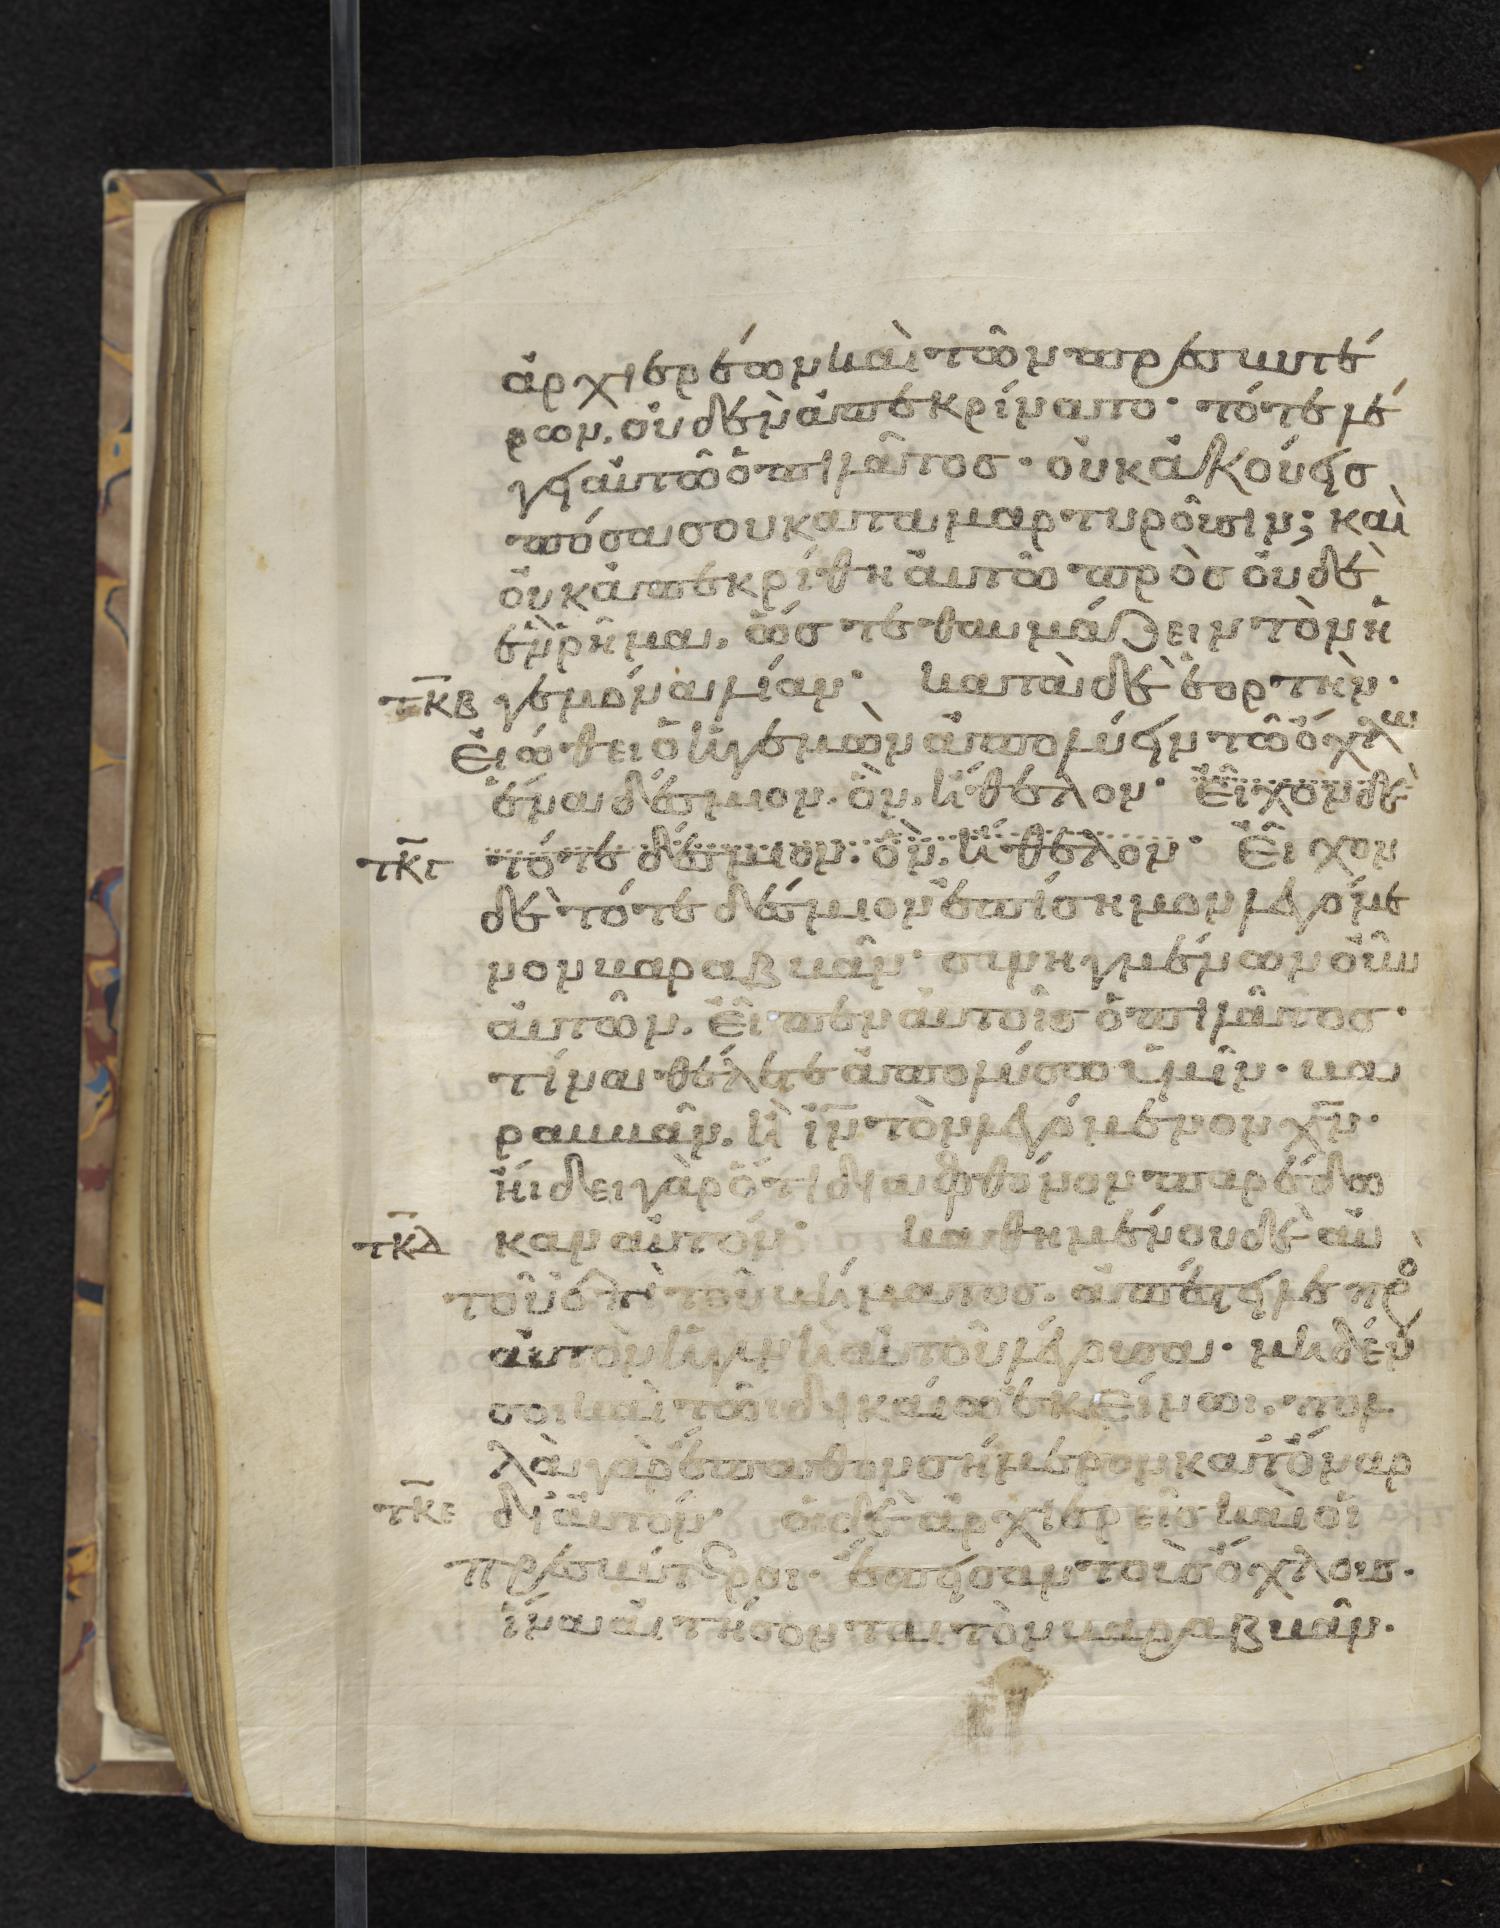 ἀρχιερέων καὶ τῶν πρεσβυτέ
ρων. οὐδὲν ἀπεκρίνατο· τότε λέ
γει αὐτῶ ὁ πιλᾶτος· οὐκ ἀκούεις
πόσα σου καταμαρτυροῦσιν; καὶ
οὐκ ἀπεκρίθη αὐτῶ πρὸς οὐδὲ
ἓν ῥῆμα. ὥστε θαυμάζειν τὸν ἡ
τκβ γεμόνα λίαν· κατὰ δὲ ἑορτὴν·
εἰώθει ὁ ἡγεμὼν ἀπολύειν τῶ ὄχλω
ἕνα δέσμιον. ὃν ἤθελον· εἶχον δὲ
τκγ τότε δέσμιον. ὃν ἤθελον· εἶχον
δὲ τότε δέσμιον ἐπίσημον λεγόμε
νον βαραββᾶν· συνηγμένων οὖν
αὐτῶν. εἶπεν αὐτοῖς ὁ πιλᾶτος·
τίνα θέλετε ἀπολύσω ὑμῖν· βα
ραββᾶν. ἢ ἰν τὸν λεγόμενον χν·
ἤιδει γὰρ ὅτι διὰ φθόνον παρέδω
τκδ καν αὐτόν· καθημένου δὲ αὐ
τοῦ ἐπὶ τοῦ βήματος. ἀπέστειλε πρὸς
αὐτὸν ἡ γυνὴ αὐτοῦ λέγουσα· μηδέν
σοι καὶ τῶι δικαίω ἐκείνωι. πολ
λὰ γὰρ ἔπαθον σήμερον κατ ὄναρ
τκε δι αὐτόν· οἱ δὲ ἀρχιερεῖς καὶ οἱ
πρεσβύτεροι· ἔπεισαν τοὺς ὄχλους.
ἵνα αἰτήσονται τὸν βαραββᾶν·